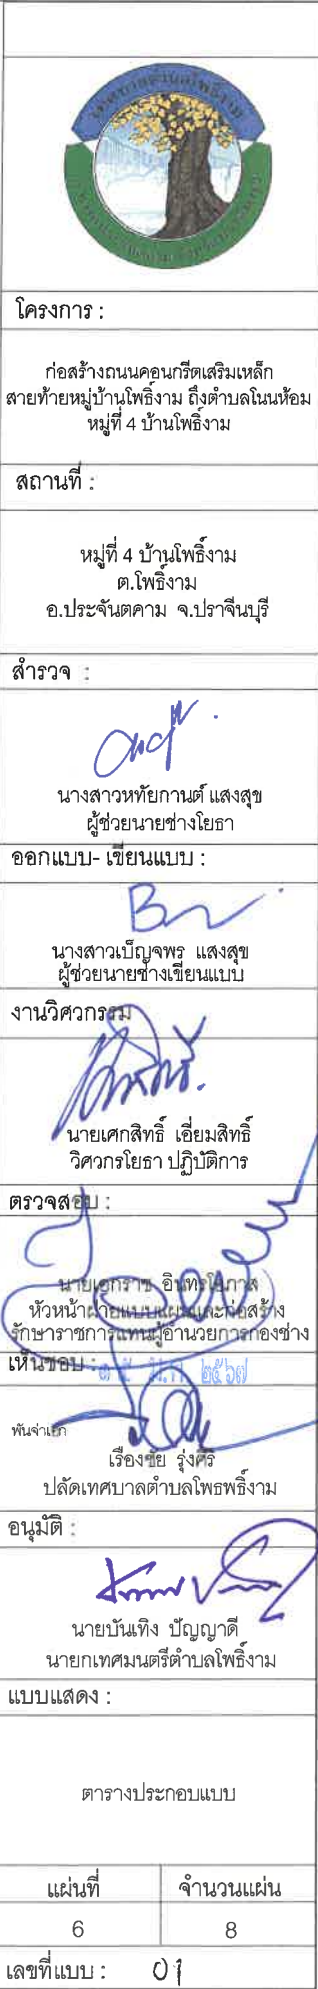 เทศบาลตำบลโพธิ์งาม
โครงการ :
ก่อสร้างถนนคอนกรีตเสริมเหล็ก
สายท้ายหมู่บ้านโพธิ์งาม ถึงตำบลโนนห้อม
หมู่ที่ 4 บ้านโพธิ์งาม
สถานที่ :
หมู่ที่ 4 บ้านโพธิ์งาม
ต.โพธิ์งาม
อ.ประจันตคาม จ.ปราจีนบุรี
สำรวจ :
นางสาวหทัยกานต์ แสงสุข
ผู้ช่วยนายช่างโยธา
ออกแบบ- เขียนแบบ :
นางสาวเบ็ญจพร แสงสุข
ผู้ช่วยนายช่างเขียนแบบ
งานวิศวกรรม
นายเศกสิทธิ์ เอี่ยมสิทธิ์
วิศวกรโยธา ปฏิบัติการ
ตรวจสอบ :
นายเอกราช อินทรโอภาส
หัวหน้าฝ่ายแบบแผนและก่อสร้าง
รักษาราชการแทนผู้อำนวยการกองช่าง
เห็นชอบ : ๒๕๖๗
พันจ่าเอก
เรืองชัย รุ่งศิริ
ปลัดเทศบาลตำบลโพธพธิ์งาม
อนุมัติ :
นายบันเทิง ปัญญาดี
นายกเทศมนตรีตำบลโพธิ์งาม
แบบแสดง :
ตารางประกอบแบบ
แผ่นที่ จำนวนแผ่น
6 8
เลขที่แบบ : 01